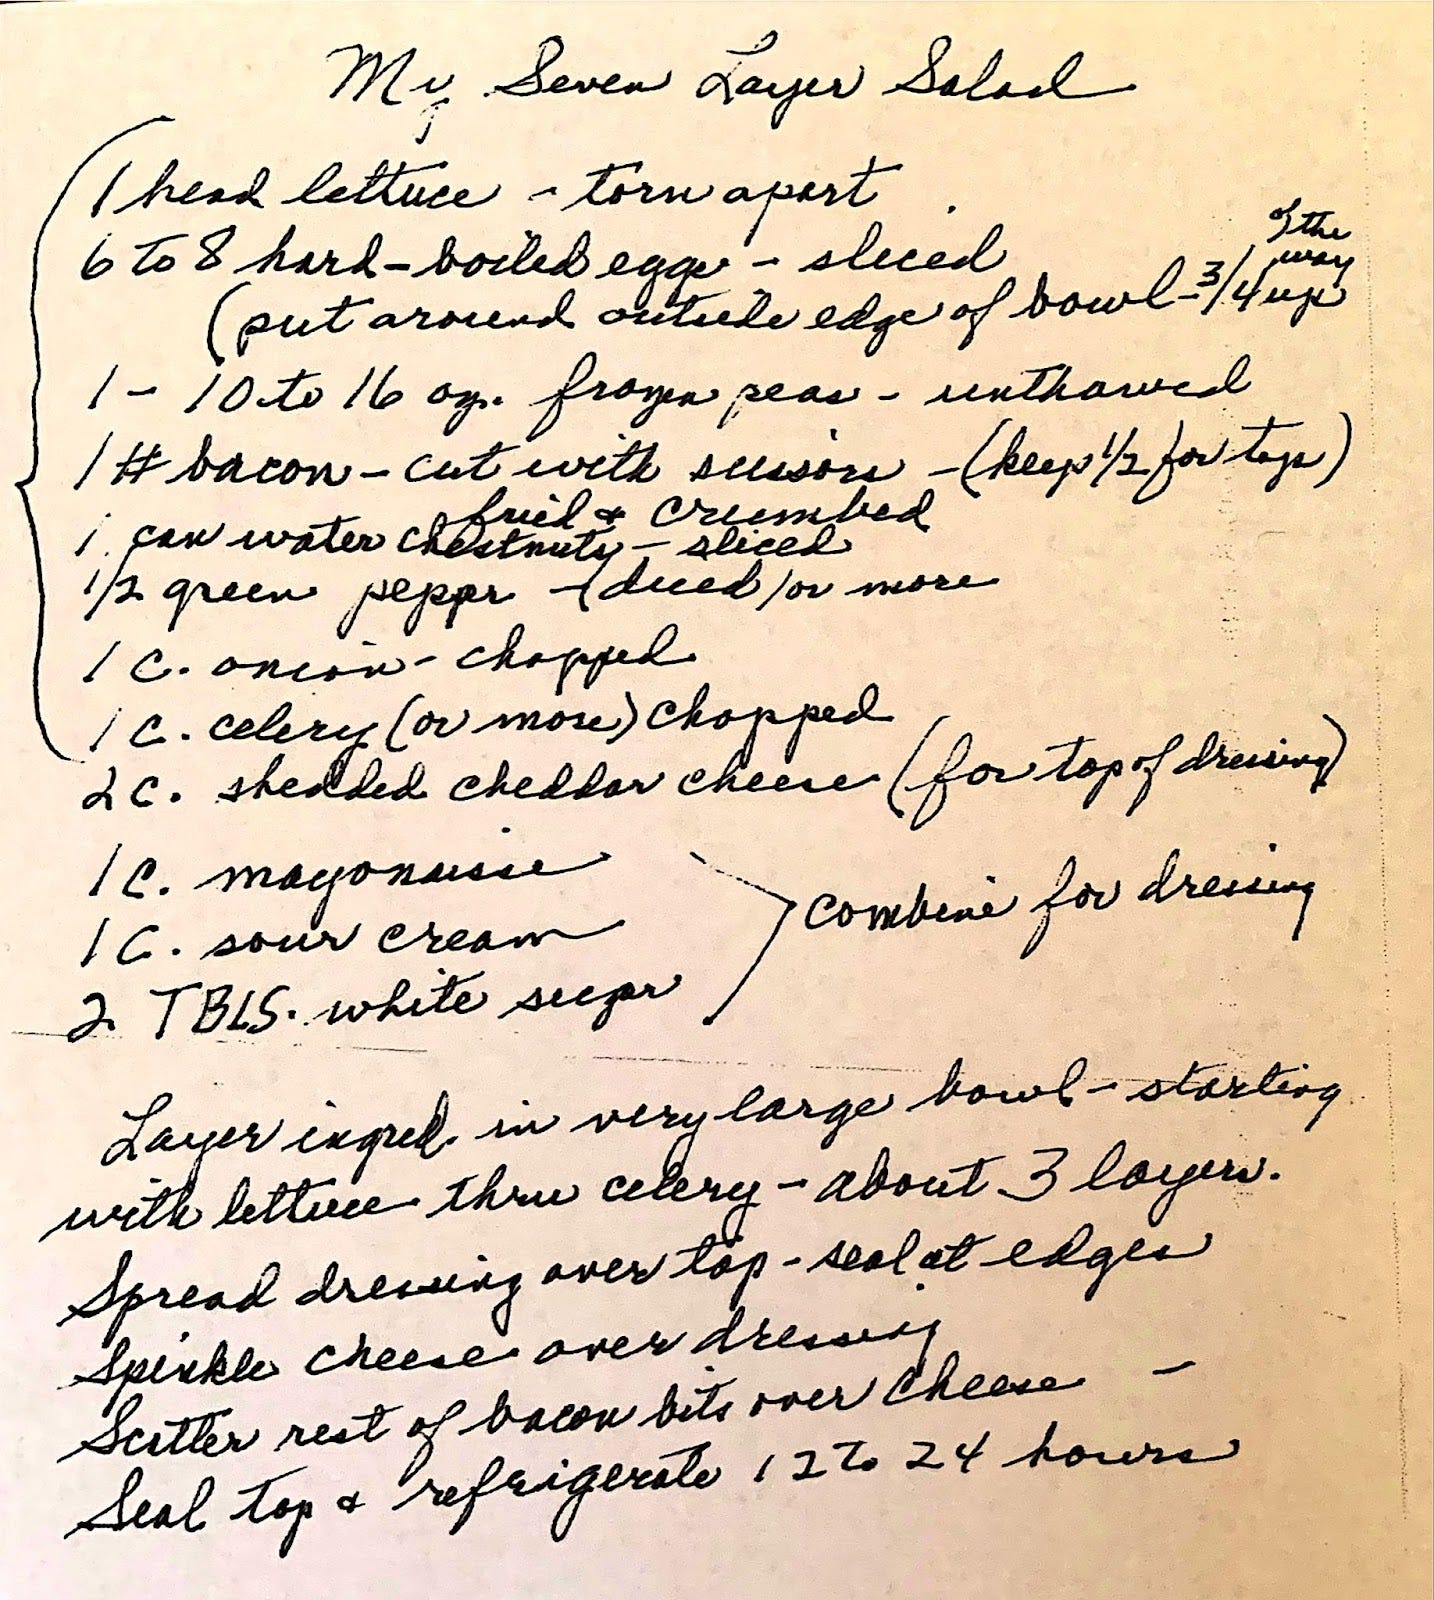 My Seven Layer Salad
1 head lettuce - torn apart
6 to 8 hard-boiled eggs - sliced
(put around outside edge of bowl - 3/4 of the way up
1 - 10 to 16 oz. frozen peas - unthawed
1 # bacon - cut with scissors - (keep 1/2 for top)
fried & crumbed
1 can water chestnuts - sliced
1/2 green pepper - (diced/or more
1 C. onion - chopped
1 C. celery (or more) chopped
2 C. shedded cheddar cheese (for top of dressing)
1 C. mayonaisse
1 C. sour cream
2 TBLS. white sugar
combine for dressing
Layer ingred. in very large bowl - starting
with lettuce thru celery - about 3 layers.
Spread dressing over top - seal at edges
Spinkle cheese over dressing
Scatter rest of bacon bits over cheese -
Seal top & refrigerate 12 to 24 hours